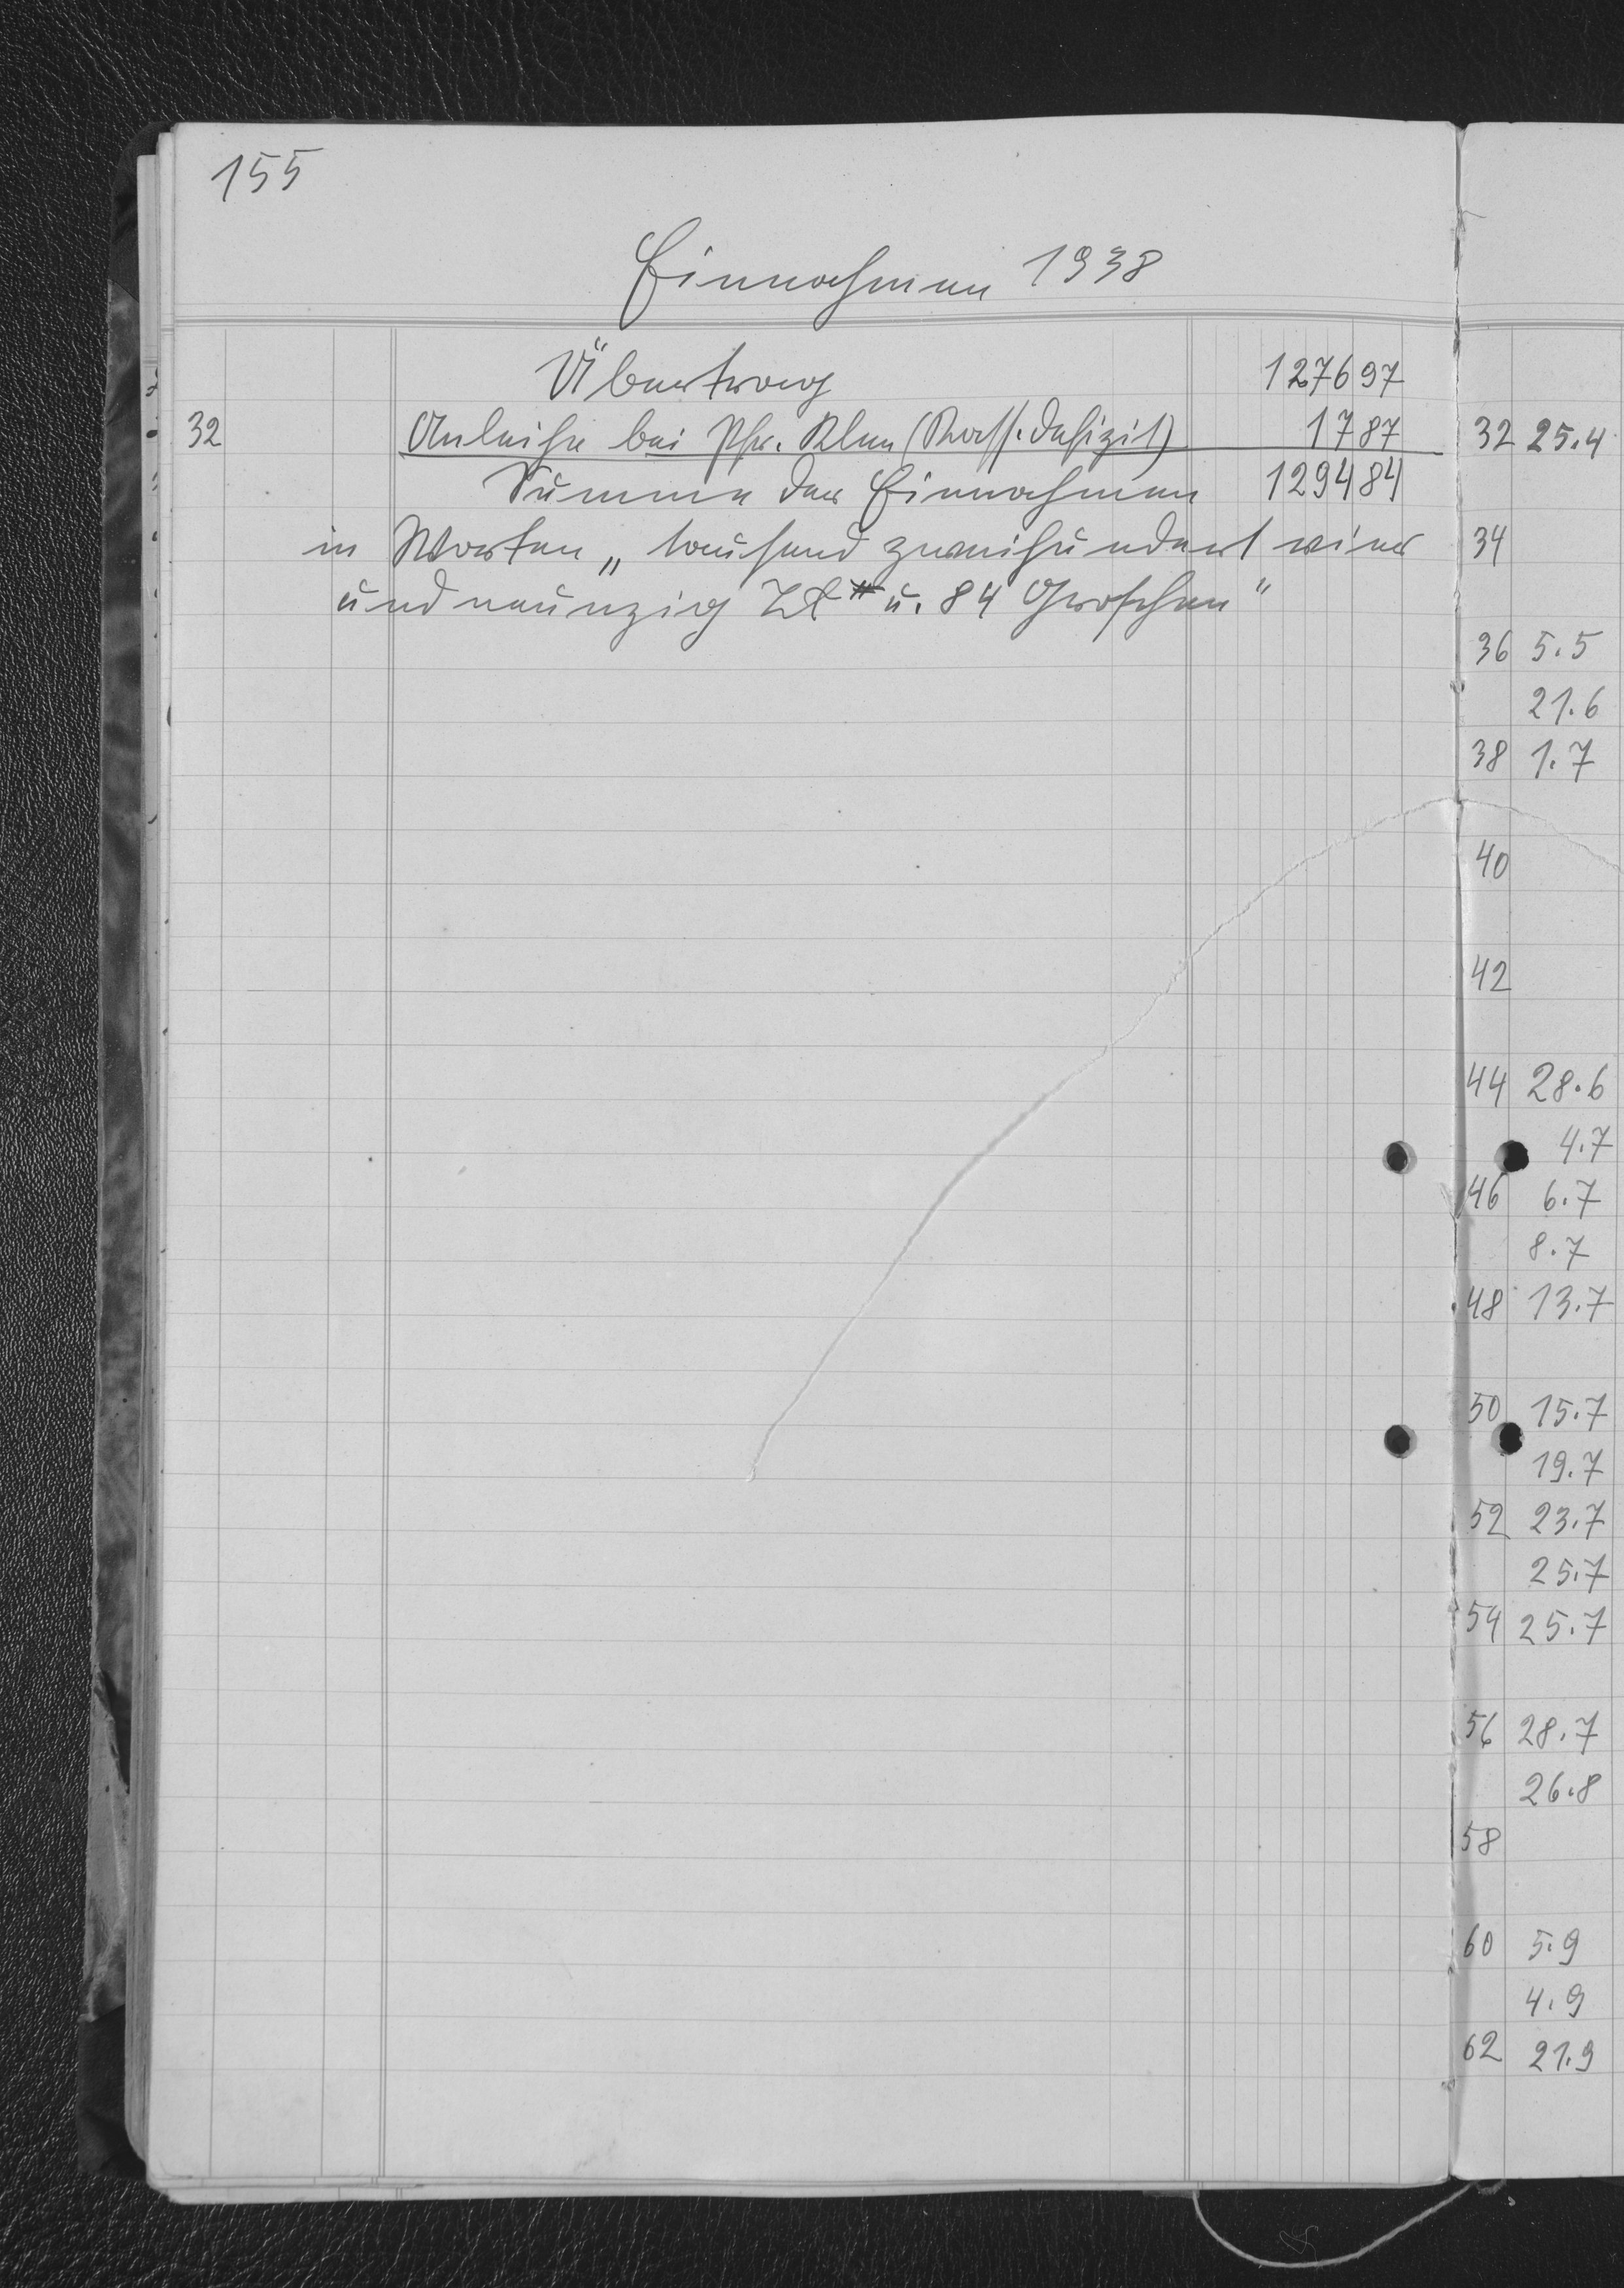 155
Einnahmen 1938
Übertrag 1276 97
32 Anleihe bei Pfr. Klee (Kass. Defizit) 17 87
Summe der Einnahmen 1294 84
in Worten „tausend zweihundert vier
und neunzig Zł u. 84 Groschen“
32 25.4
34
36 5.5
21.6
38 1.7
40
42
44 28.6
4.7
46 6.7
8.7
48 13.7
50 15.7
19.7
52 23.7
25.7
54 25.7
56 28.7
26.8
58
60 5.9
4.9
62 21.9